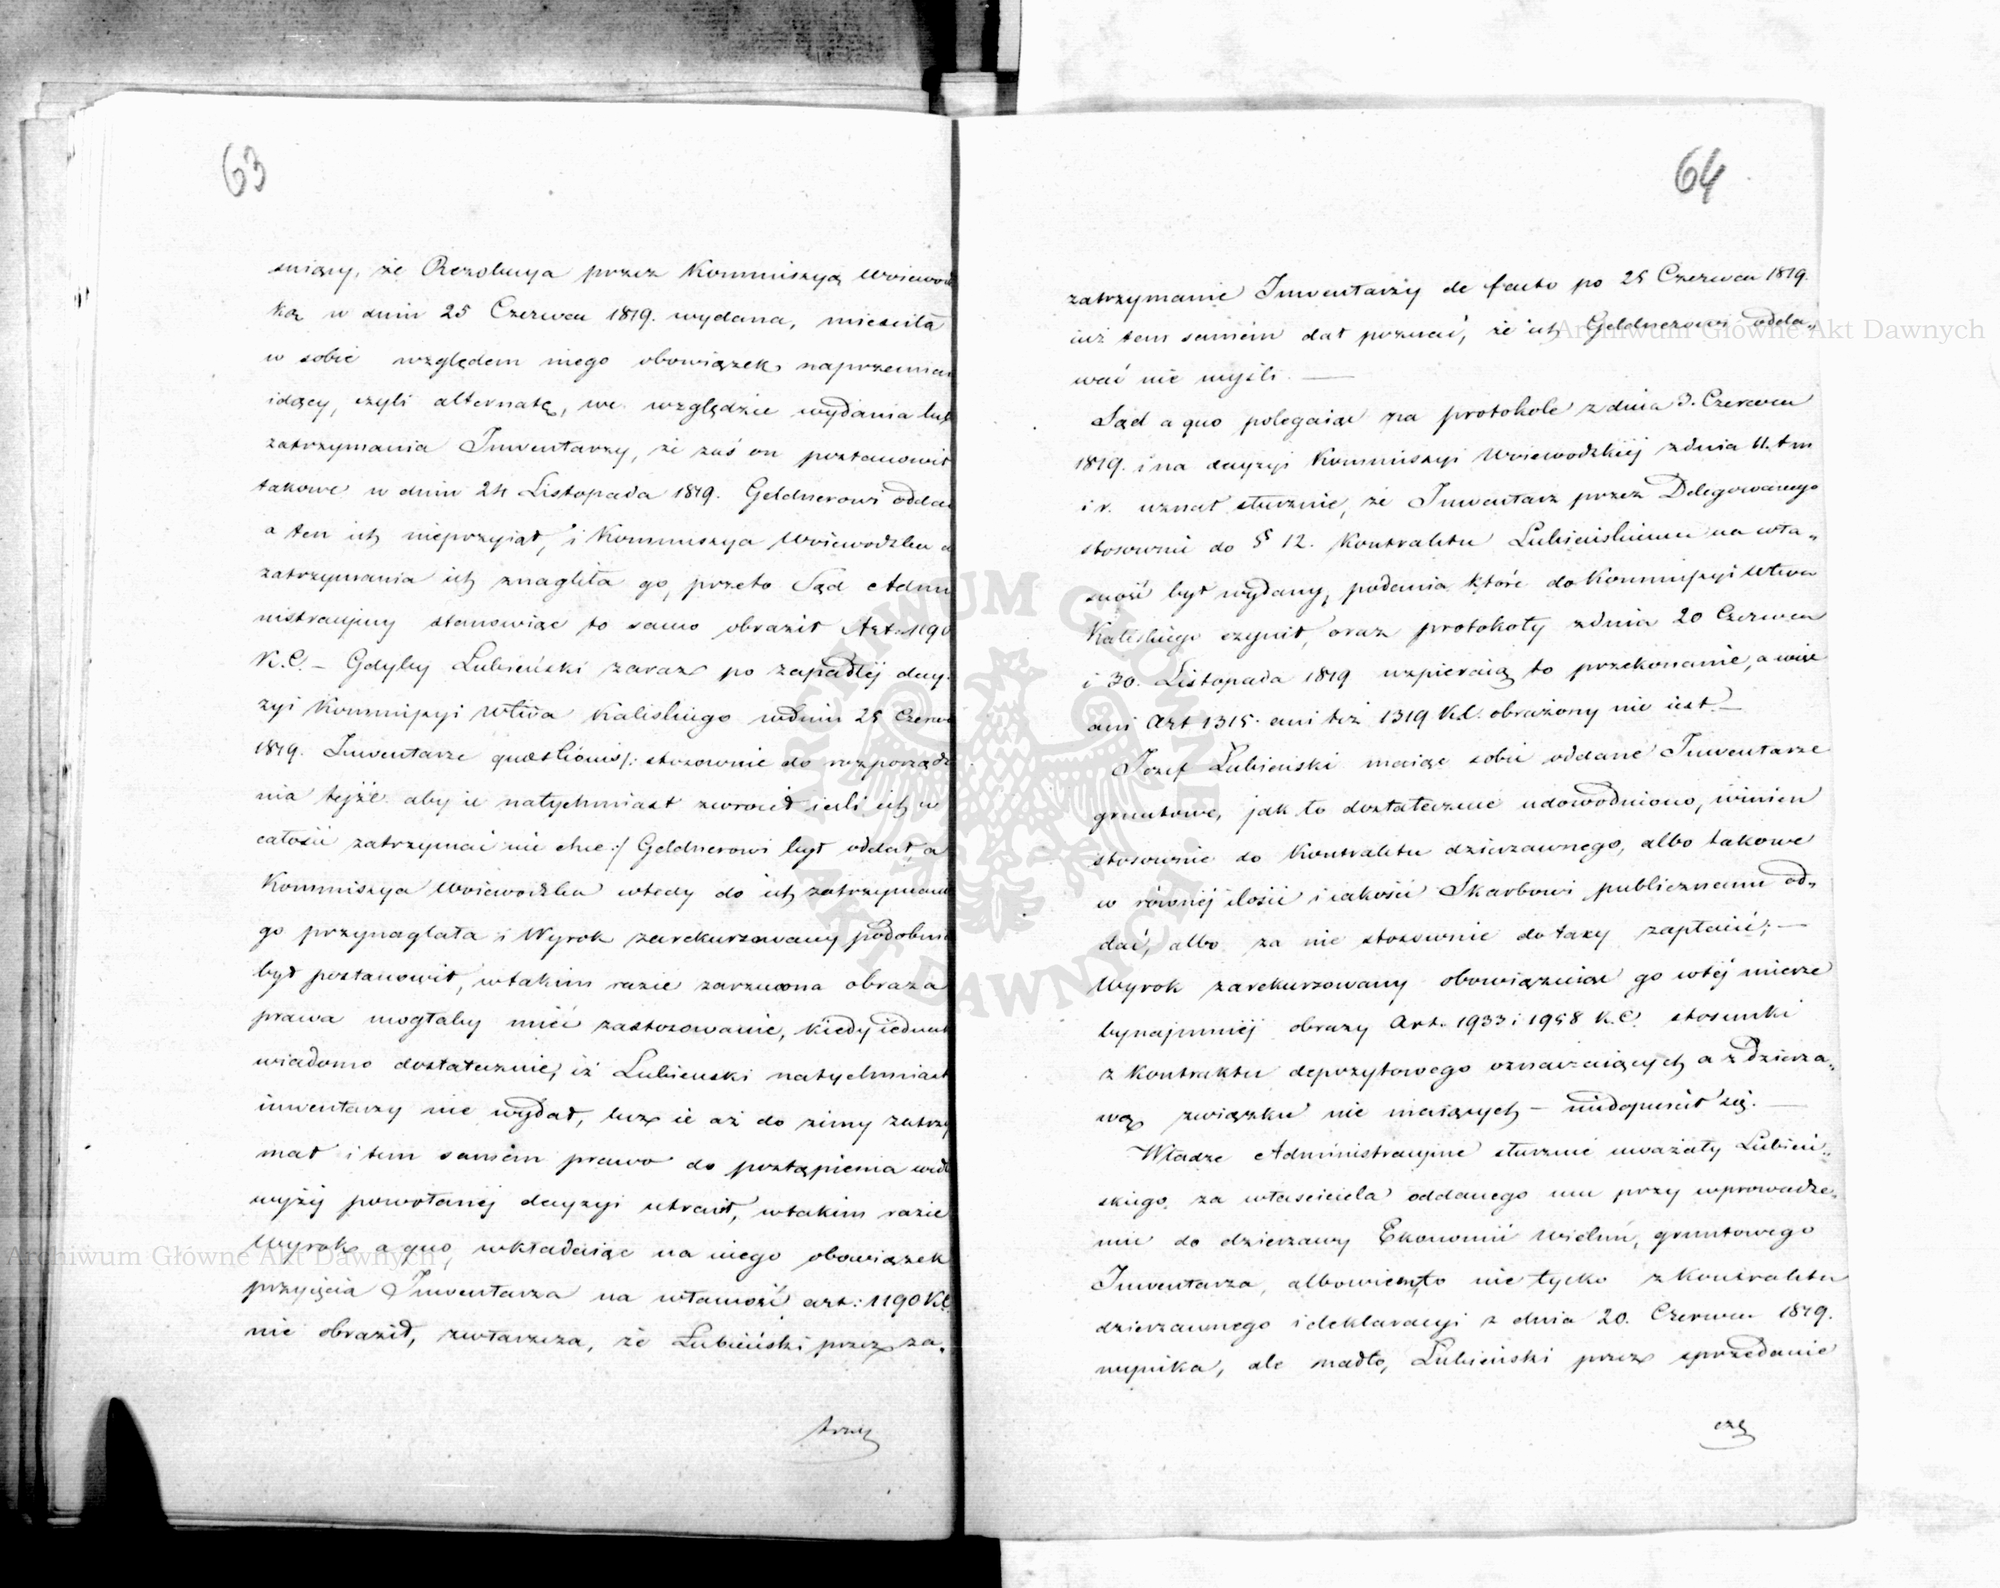 63
sniący, że Rezolucya przez Kommissyą Woiewodz
ką w dniu 25 Czerwca 1819. wydana, mieściła
w sobie względem niego obowiązek naprzemian
idący, czyli alternatę, we względzie wydania lub
zatrzymania Inwentarzy, że zaś on postanowił
takowe w dniu 24 Listopada 1819. Geldnerowi oddać
a ten ich nieprzyiął, i Kommissya Woiewodzka d
zatrzymania ich znagliła go, przeto Sąd Admi
nistracyiny stanowiąc to samo obraził Art. 1190
K.C. – Gdyby Lubieński zaraz po zapadłéj decy-
zyi Kommissyi Wtwa Kaliskiego wdniu 25 Czerwc
1819. Inwentarze quaestionis /: stosownie do rozporządz
nia tejże aby ie natychmiast zwrócił ieśli ich w
całości zatrzymać nie chce :/ Geldnerowi był oddał, a
Kommissya Woiewodzka wtedy do ich zatrzymani
go przynaglała i Wyrok zarekurzowany podobnie
był postanowił, wtakim razie zarzucona obraza
prawa mogłaby mieć zastosowanie, kiedy iednak
wiadomo dostatecznie, iż Lubienski natychmiast
inwentarzy nie wydał, lecz ie aż do zimy zatrzy
mał i tem samém prawo do postąpienia wedł
wyżéj powołanéj decyzyi utracił, wtakim razie
Wyrok a quo, wkładaiąc na niego obowiązek
przyjęcia Inwentarza na własność art: 1190 K.C.
nie obraził, zwłaszcza, że Lubieński przez za-
trzy
64
zatrzymanie Inwentarzy de facto po 25 Czerwca 1819.
iuż tem samém dał poznać, że ich Geldnerowi odda-
wać nie myśli. —
Sąd a quo polegaiąc na protokole z dnia 3. Czerwca
1819. i na decyzyi Kommissyi Woiewodzkiéj zdnia 11. t m
i r. uznał słusznie, że Inwentarz przez Delegowanego
stosownie do § 12. Kontraktu Lubieńskiemu na wła-
sność był wydany, podania które do Kommissyi Wtwa
Kaliskiego czynił, oraz protokoły zdnia 20 Czerwca
i 30. Listopada 1819 wspieraią to przekonanie, a więc
ani Art 1315. ani też 1319 K.C. obrażony nie iest. —
Jozef Łubieński maiąc sobie oddane Inwentarze
gruntowe, jak to dostatecznie udowodniono, winien
stosownie do Kontraktu dzierzawnego, albo takowe
w równéj ilości i iakości Skarbowi publicznemu od-
dać, albo za nie stosownie do taxy zapłacić; —
Wyrok zarekurzowany obowiązuiąc go wtéj mierze
bynajmniéj obrazy Art. 1933 i 1958 K.C. stosunki
z Kontraktu depozytowego oznaczaiących a z dzierza-
wą związku nie maiących – niedopuścił się. —
Władze Administracyine słusznie uważały Lubień-
skiego za właściciela oddanego mu przy wprowadze-
niu do dzierzawy Ekonomii Wieluń, gruntowego
Inwentarza, albowiem to nie tylko z Kontraktu
dzierzawnego i deklaracyi z dnia 20. Czerwca 1819.
wynika, ale nadto, Lubieński przez sprzedanie
czę
Archiwum Główne Akt Dawnych
Archiwum Główne Akt Dawnych
ARCHIWUM GŁÓWNE AKT DAWNYCH